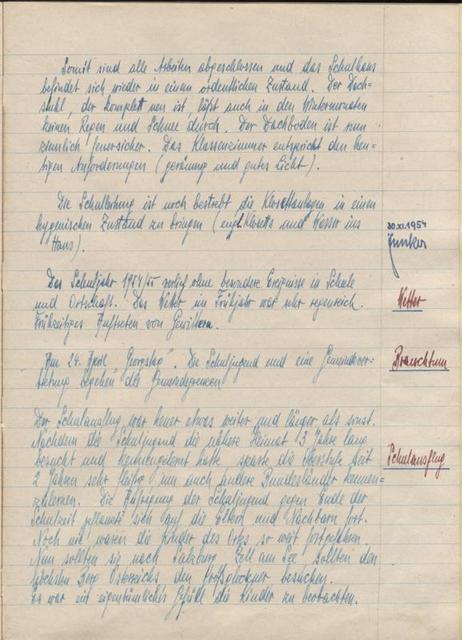 Somit sind alle Arbeiten abgeschlossen und das Schulhaus
befindet sich wieder in einem ordentlichen Zustand. Der Dach-
stuhl, der komplett neu ist, läßt auch in den Wintermonaten
keinen Regen und Schnee durch. Der Dachboden ist nun
ziemlich feuersicher. Das Klassenzimmer entspricht den heu-
tigen Anforderungen (geräumig und gutes Licht).
Die Schulleitung ist noch bestrebt die Klosettanlagen in einen
hygenischen Zustand zu bringen (engl. Klosetts und Wasser ins
Haus).
30.XI.1954
Junker
Das Schuljahr 1954/55 verlief ohne besondere Ereignisse in Schule
und Ortschaft. Das Wetter im Frühjahr war sehr regenreich.
Frühzeitiges Auftreten von Gewittern.
Wetter
Am 24. April "Georgstag". Die Schuljugend und eine Gemeindever-
tretung begehen die Gemeindegrenzen.
Brauchtum
Der Schulausflug war heuer etwas weiter und länger als sonst.
Nachdem die Schuljugend die nähere Heimat 13 Jahre lang
besucht und kennengelernt hatte sparte die Oberstufe seit
2 Jahren sehr fleißig um auch andere Bundesländer kennen-
zulernen. Die Aufregung der Schuljugend gegen Ende der
Schulzeit pflanzte sich auf die Eltern und Nachbarn fort.
Noch nie waren die Kinder des Ortes so weit fortgefahren.
Nun sollten sie nach Salzburg Zell am See sollten den
höchsten Berg Österreichs den Großglockner besuchen.
Es war ein eigentümliches Gefühl die Kinder zu beobachten.
Schulausflug